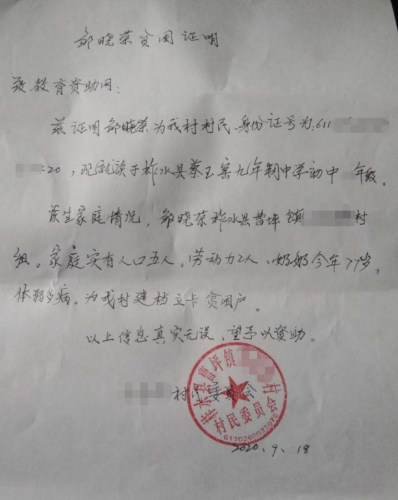 郜晓荣贫困证明
致教育资助网：
兹证明郜晓荣为我村村民身份证号为:611
:20，就读于柞水县蔡玉窑九年制中学初中 年级。
原生家庭情况，郜晓荣柞水县曹坪镇 村
组。家庭实有人口五人，劳动力2人、奶奶今年77岁，
体弱多病。为我村建档立卡贫困户。
以上信息真实无误，望予以资助。
村 委 会
柞水县曹坪镇 村
村民委员会
2020.9.18